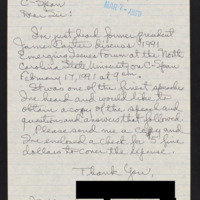 C-Span
Dear Sir:
I've just heard former president
James Carter discuss 1991
Emerging Issues Forum at the North
Carolina State University on C-Span
February 17, 1991 at 9 am.
It was one of the finest episodes
I've heard and would like to
obtain a copy of the speech and
questions and answers that followed.
Please send me a copy and
I've enclosed a check for 5
dollars to cover the expense.
Thank You,